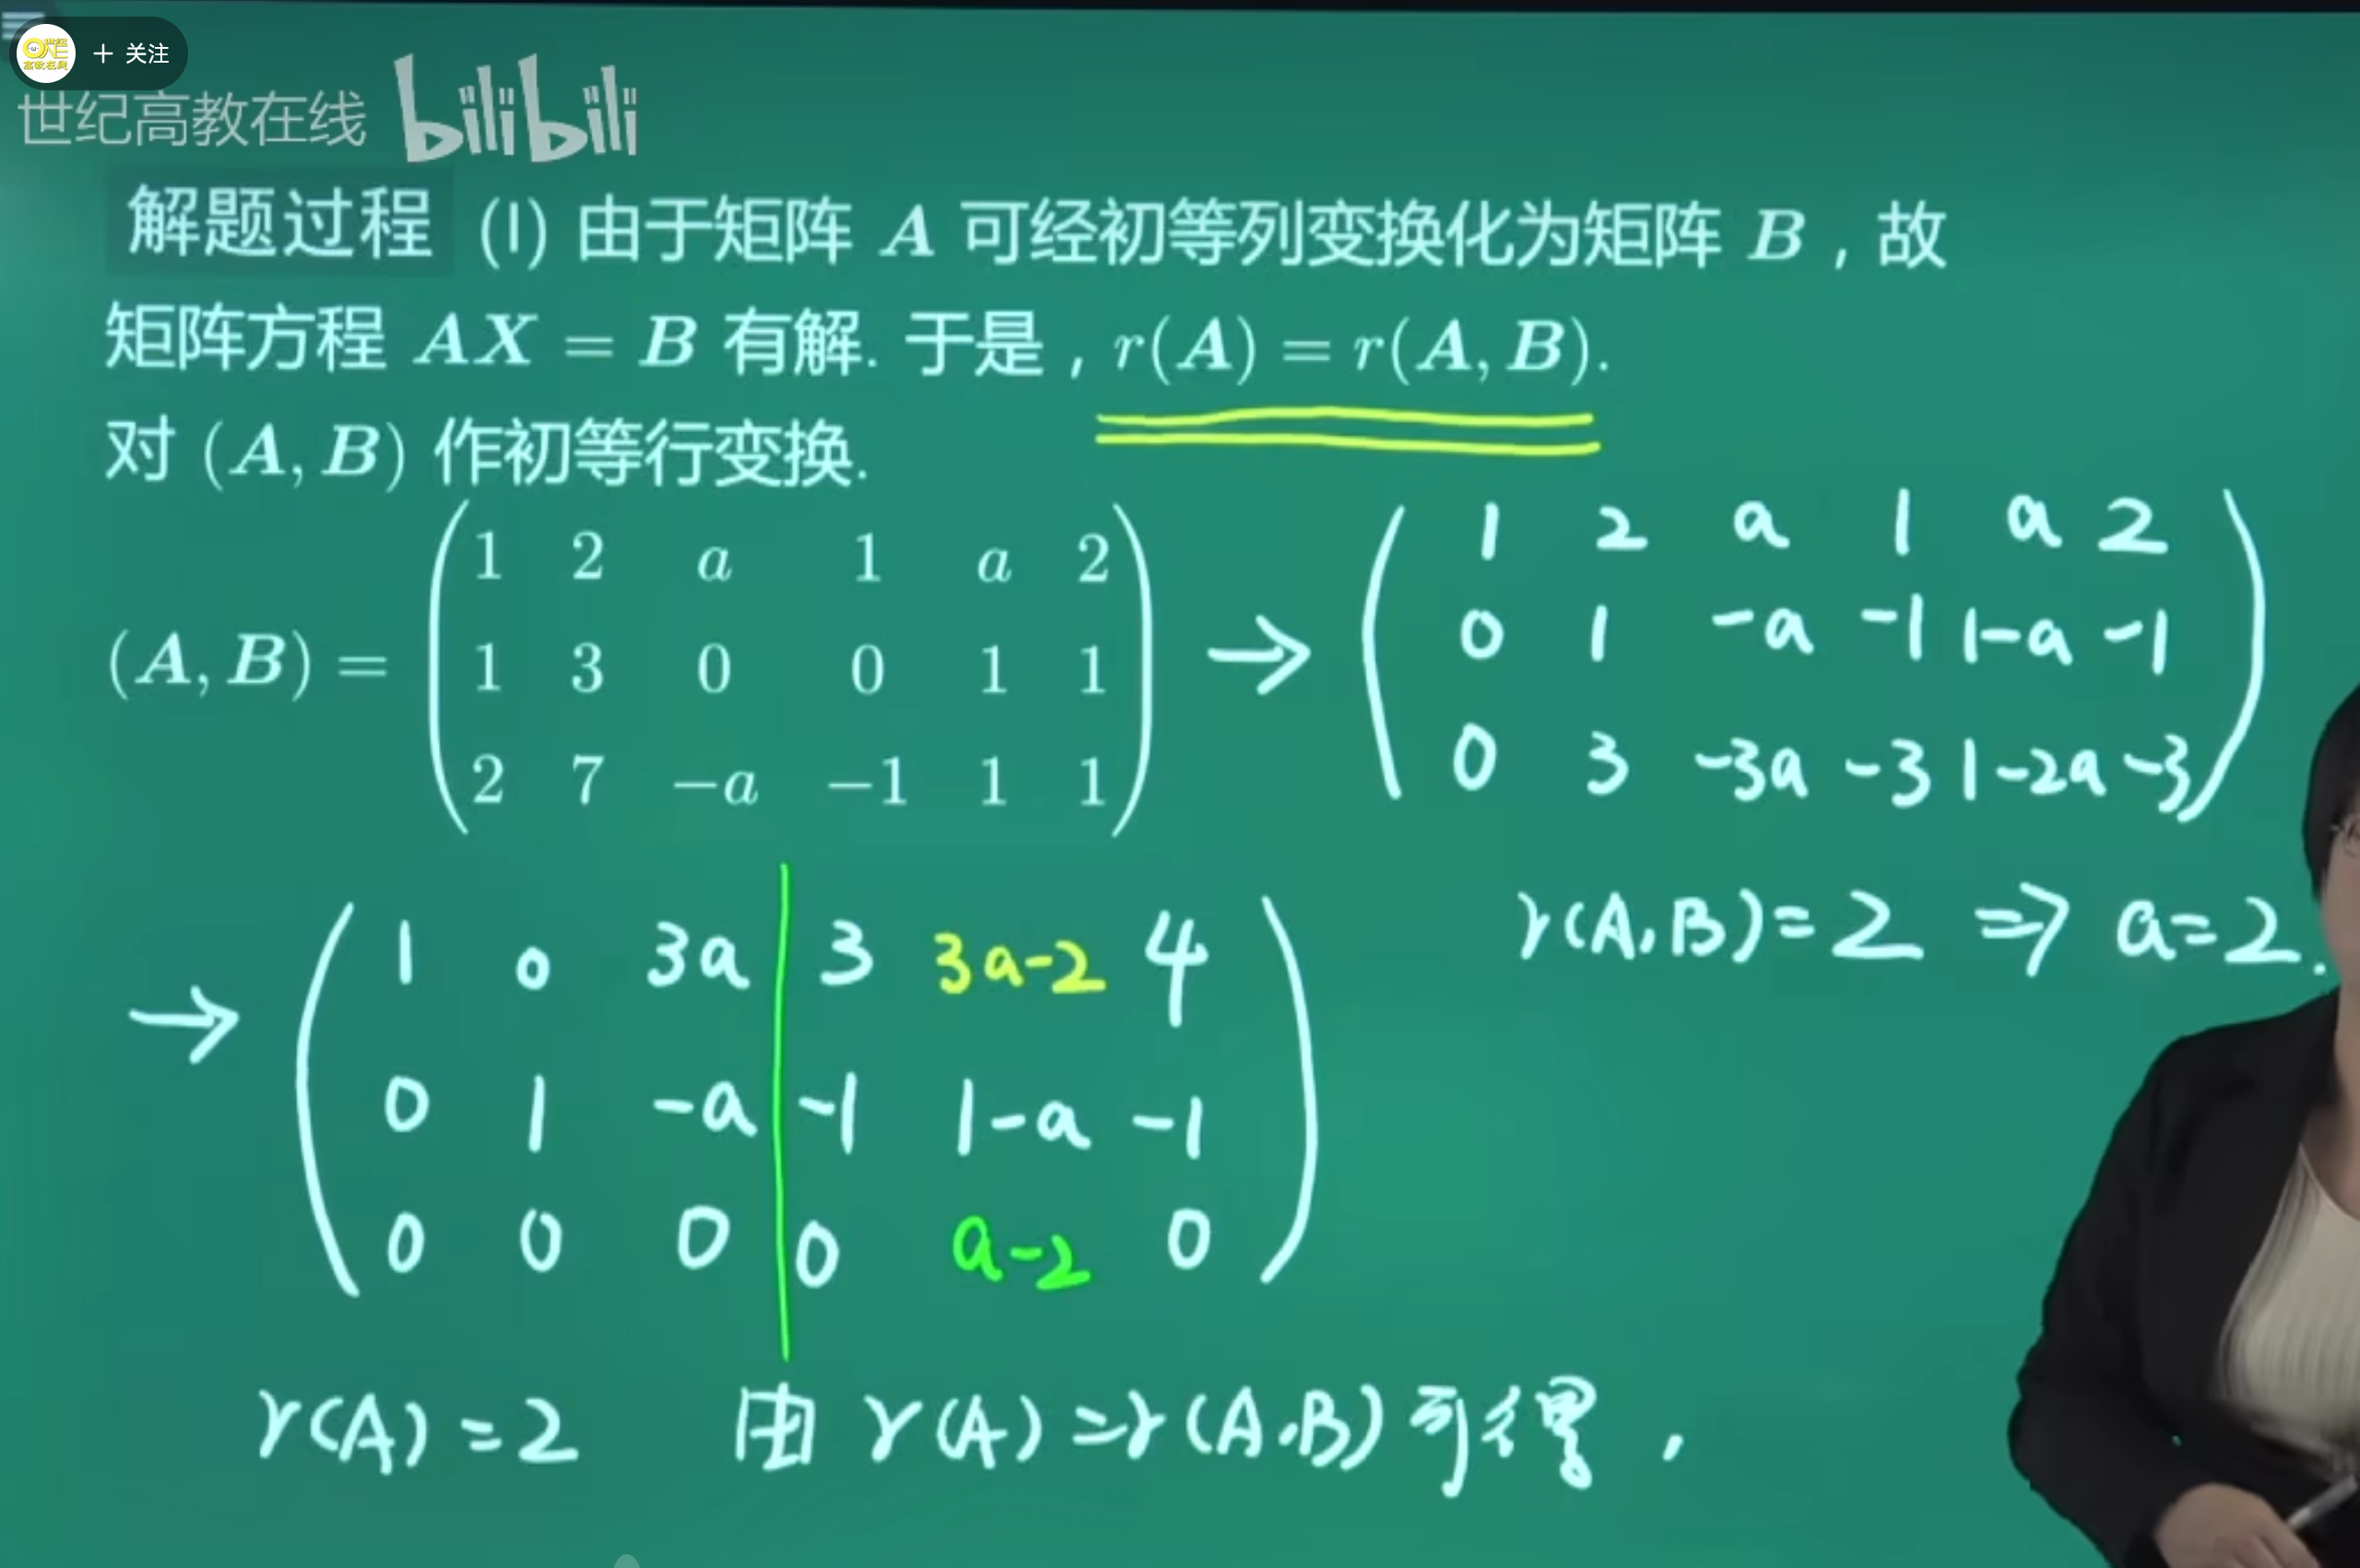 + 关注
世纪高教在线 bilibili
解题过程 (I) 由于矩阵 A 可经初等列变换化为矩阵 B , 故
矩阵方程 AX = B 有解. 于是 , r(A) = r(A, B).
对 (A, B) 作初等行变换.
(A, B) = ( 1 2 a 1 a 2
1 3 0 0 1 1
2 7 -a -1 1 1 )
→ ( 1 2 a 1 a 2
0 1 -a -1 1-a -1
0 3 -3a -3 1-2a -3 )
→ ( 1 0 3a | 3 3a-2 4
0 1 -a | -1 1-a -1
0 0 0 | 0 a-2 0 )
r(A) = 2 由 r(A) = r(A,B) 可得 ,
r(A,B) = 2 ⇒ a = 2.